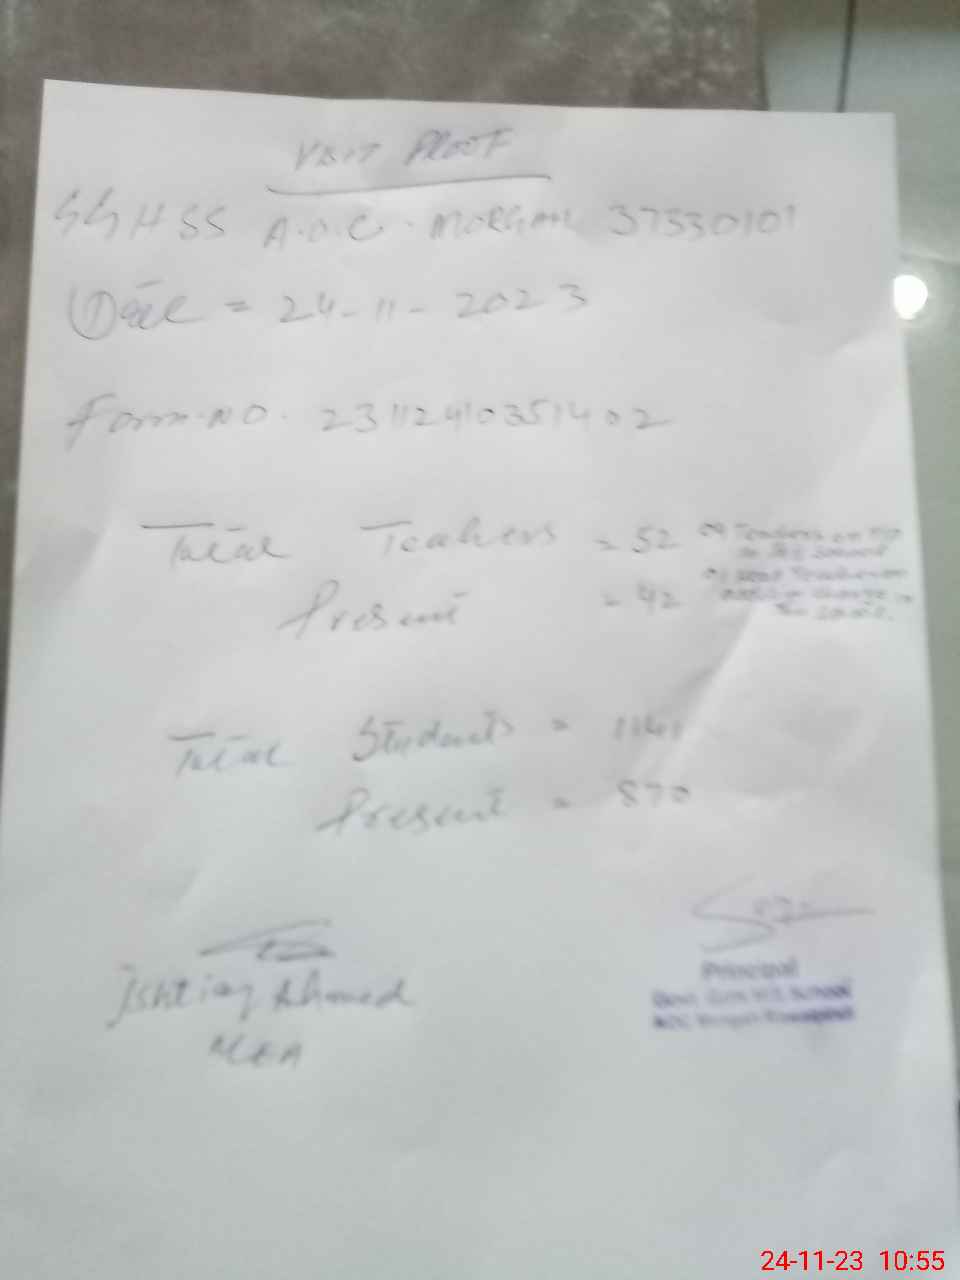 VISIT PROOF
GGHSS A.O.C. MORGAH 37330101
Date = 24-11-2023
Form-NO. 23112410351402
Total Teahers = 52
Present = 42
Total Students = 1141
Present = 870
Ishtiaq Ahmed
MEA
Principal
Govt. Girls H.S. School
AOC Morgah Rawalpindi
24-11-23 10:55